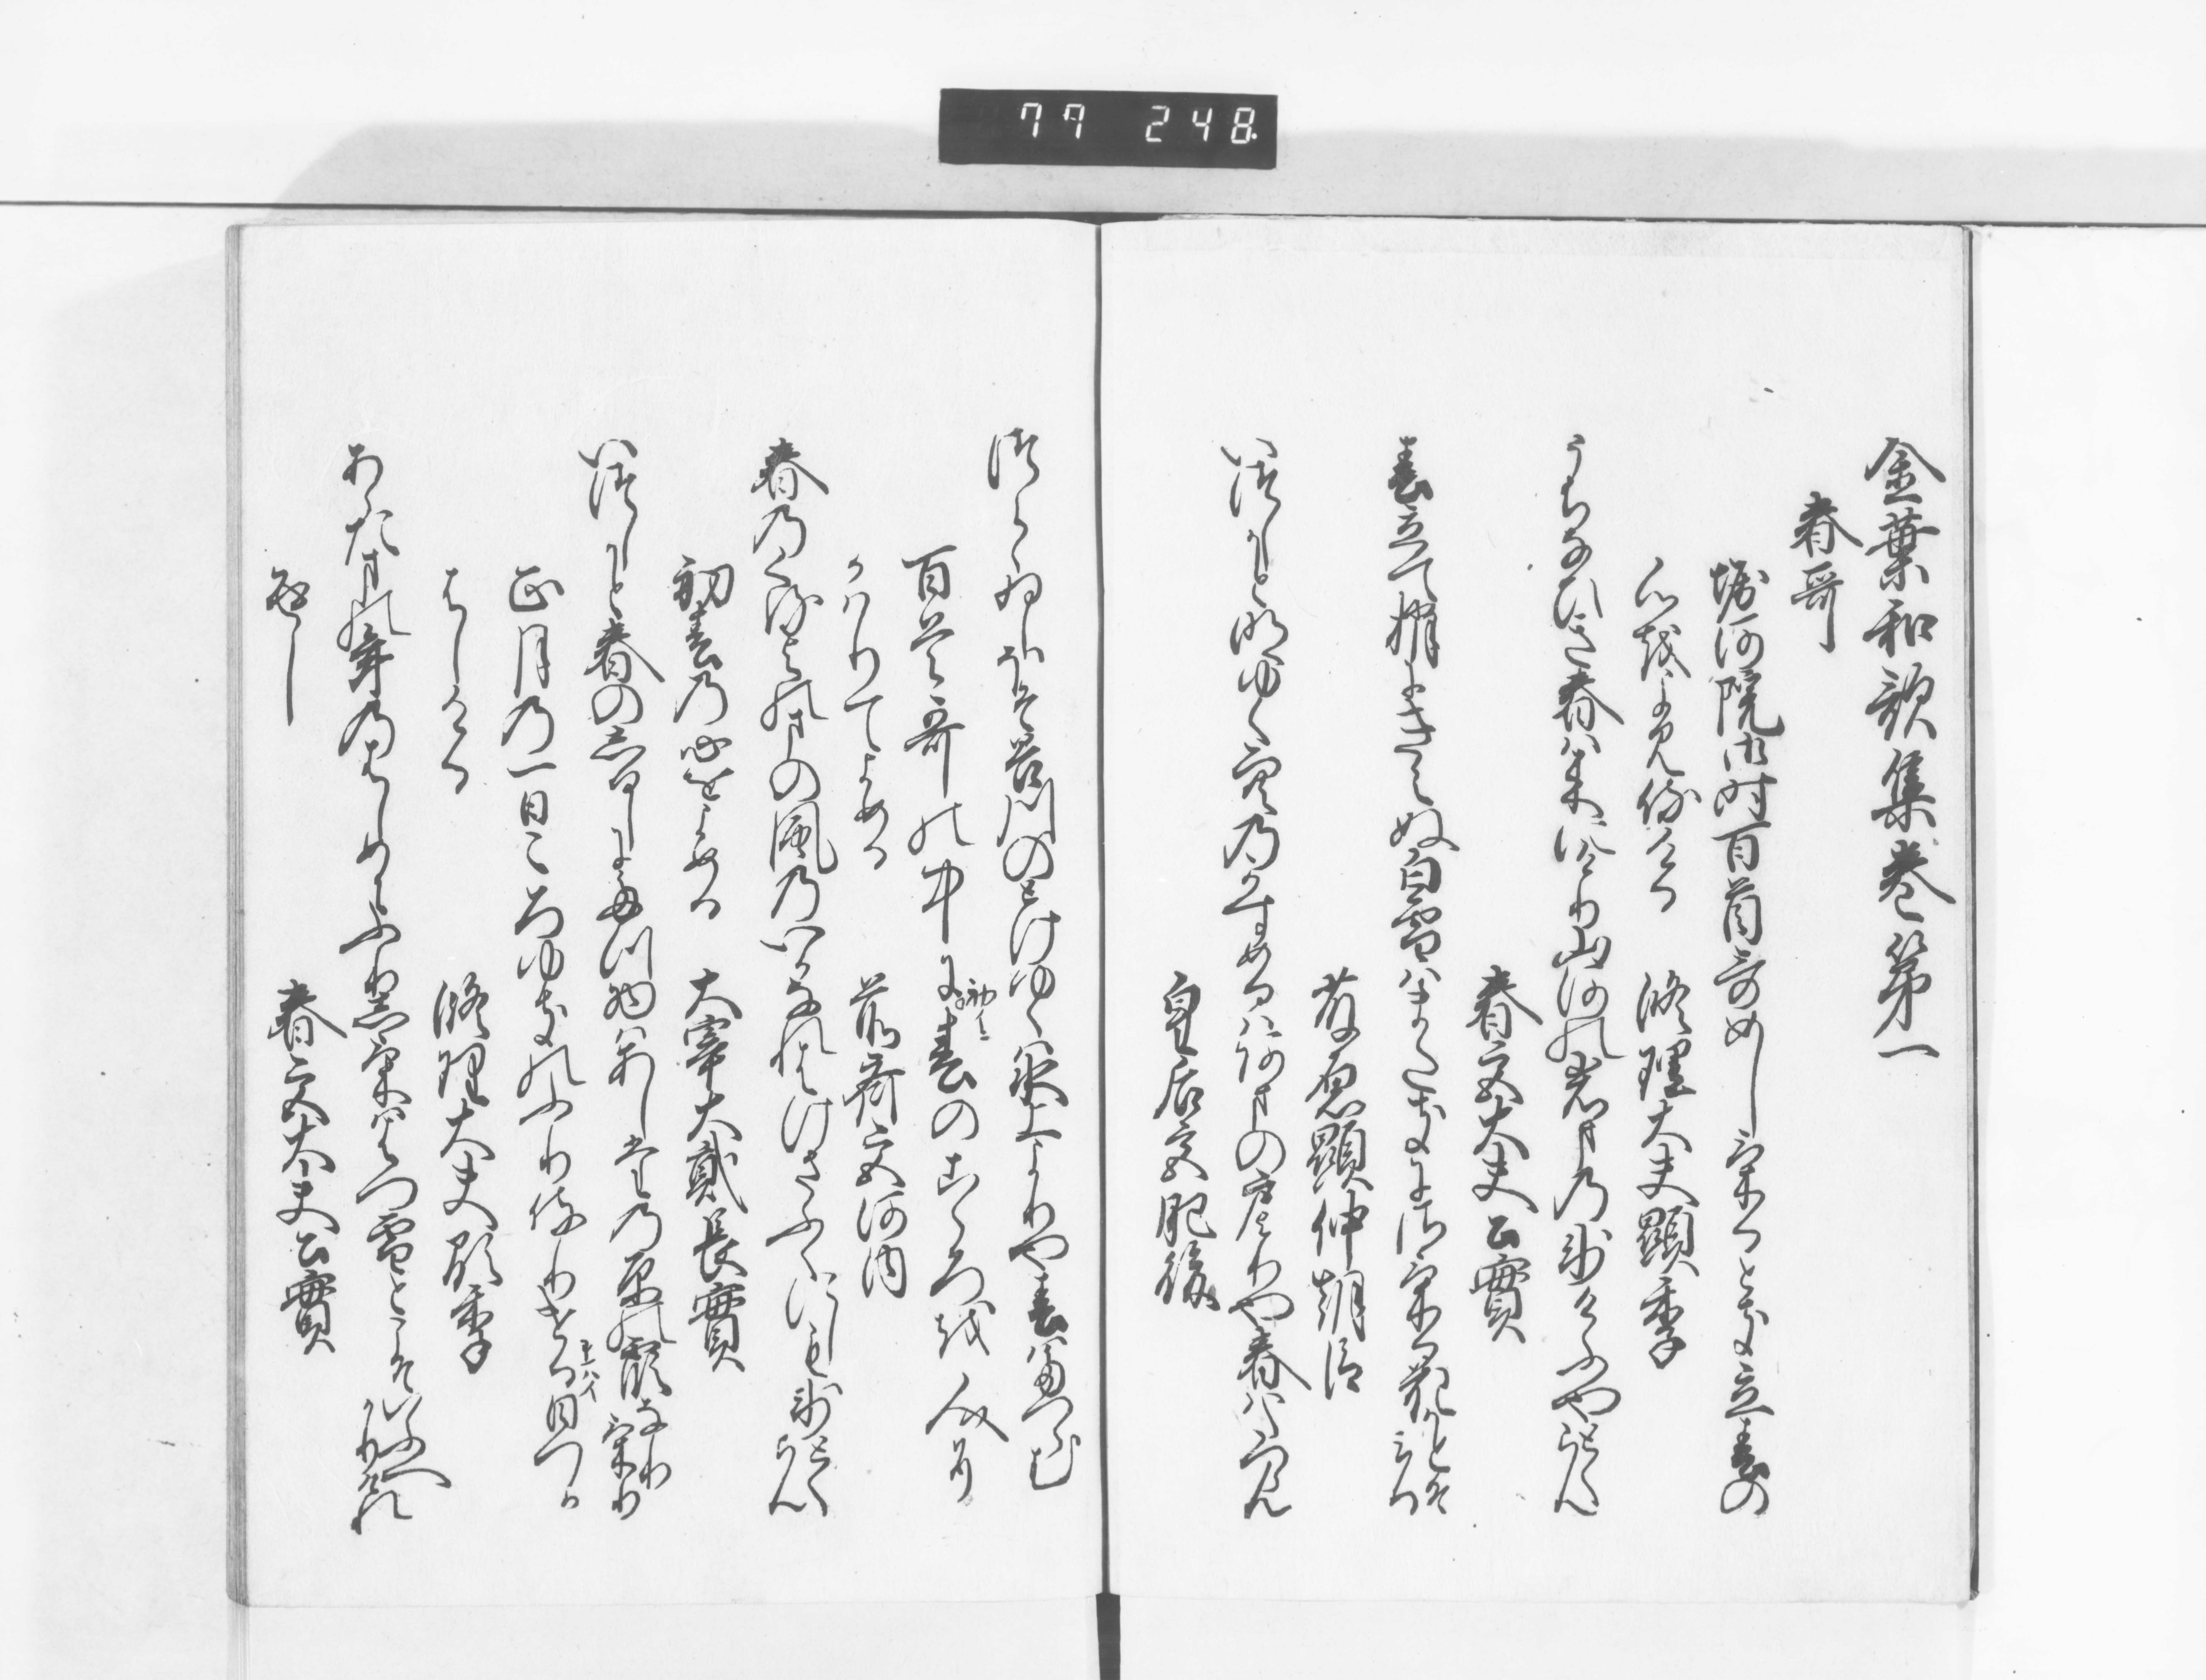 77 248
金葉和歌集巻第一
春哥
堀河院御時百首哥めしける時立春の
心をよみ侍ける
修理大夫顕季
うちなひき春はきにけり山河の岩まの氷けふやとくらん
春宮大夫公實
春立て梢にきえぬ白雪はまたきにさける花かとそみる
藤原顕仲朝臣
いつしかと明ゆく空のかすめるはあまの戸よりや春はたつらん
皇后宮肥後
つらゝゐしほそ谷川のとけゆくは水上よりや春はたつらむ
百首哥の中に春のこゝろを人に
かはりてよめる
前斎宮河内
春のくる夜のまの風のいかなれはけさふくにしも氷とくらん
初春の心をよめる
大宰大貳長實
いつしかと春のしるしにたつ物はあしたの原の霞なりけり
正月の一日ころゆきのふり侍りける日つ
かはしける
修理大夫顕季
あらたまの年のはしめにふりしけは初雪とこそいふへかりけれ
返し
春宮大夫公實